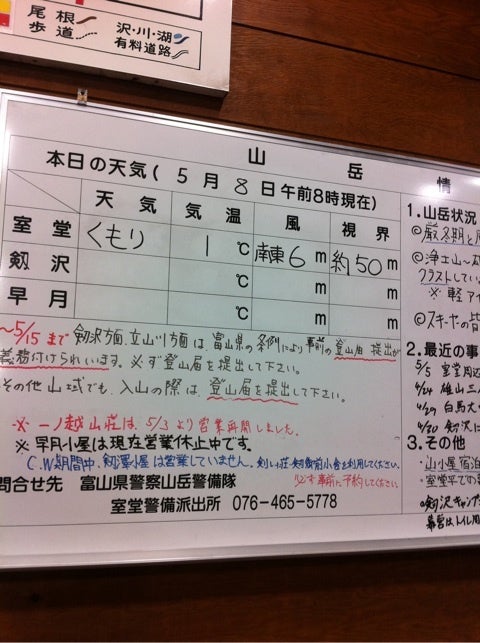 尾根
歩道
沢・川・湖
有料道路
山 岳 情
本日の天気( 5 月 8 日午前8時現在)
天 気 気 温 風 視 界
室 堂 くもり 1 ℃ 南東6 m 約50 m
剱 沢 ℃ m m
早 月 ℃ m m
~5/15 まで 剱沢方面、立山川方面は、富山県の条例により事前の登山届 提出が
義務付けられいます。必ず登山届を提出して下さい。
その他山域でも、入山の際は、登山届を提出して下さい。
※ 一ノ越山荘は、5/3より営業再開しました。
※ 早月小屋は現在営業休止中です。
G.W期間中、剱澤小屋は営業していません。
を利用してください。
必ず事前に予約してください。
問合せ先 富山県警察山岳警備隊
室堂警備派出所 076-465-5778
1.山岳状況
◎厳冬期と
◎浄土山~
クラストしてい
※ 軽アイ
◎スキーヤーの皆
2.最近の事
5/5 室堂周辺
4/24 雄山三
4/29 白馬大
4/20 剱沢に
3.その他
・山小屋宿泊
・室堂平での
◎剱沢キャンプ